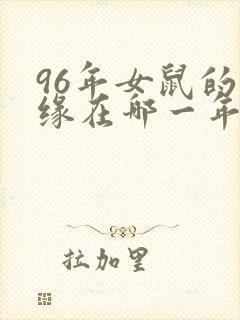 96年女鼠的
缘在哪一年
拉加里